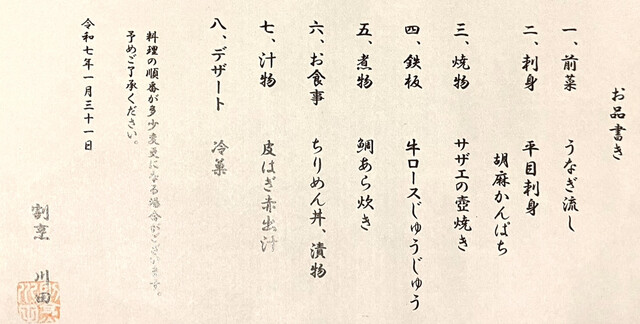 お品書き
一、前菜　うなぎ流し
二、刺身　平目刺身
胡麻かんぱち
三、焼物　サザエの壺焼き
四、鉄板　牛ロースじゅうじゅう
五、煮物　鯛あら炊き
六、お食事　ちりめん丼、漬物
七、汁物　皮はぎ赤出汁
八、デザート　冷菓
料理の順番が多少変更になる場合がございます。
予めご了承ください。
令和七年一月三十一日
割烹　川田